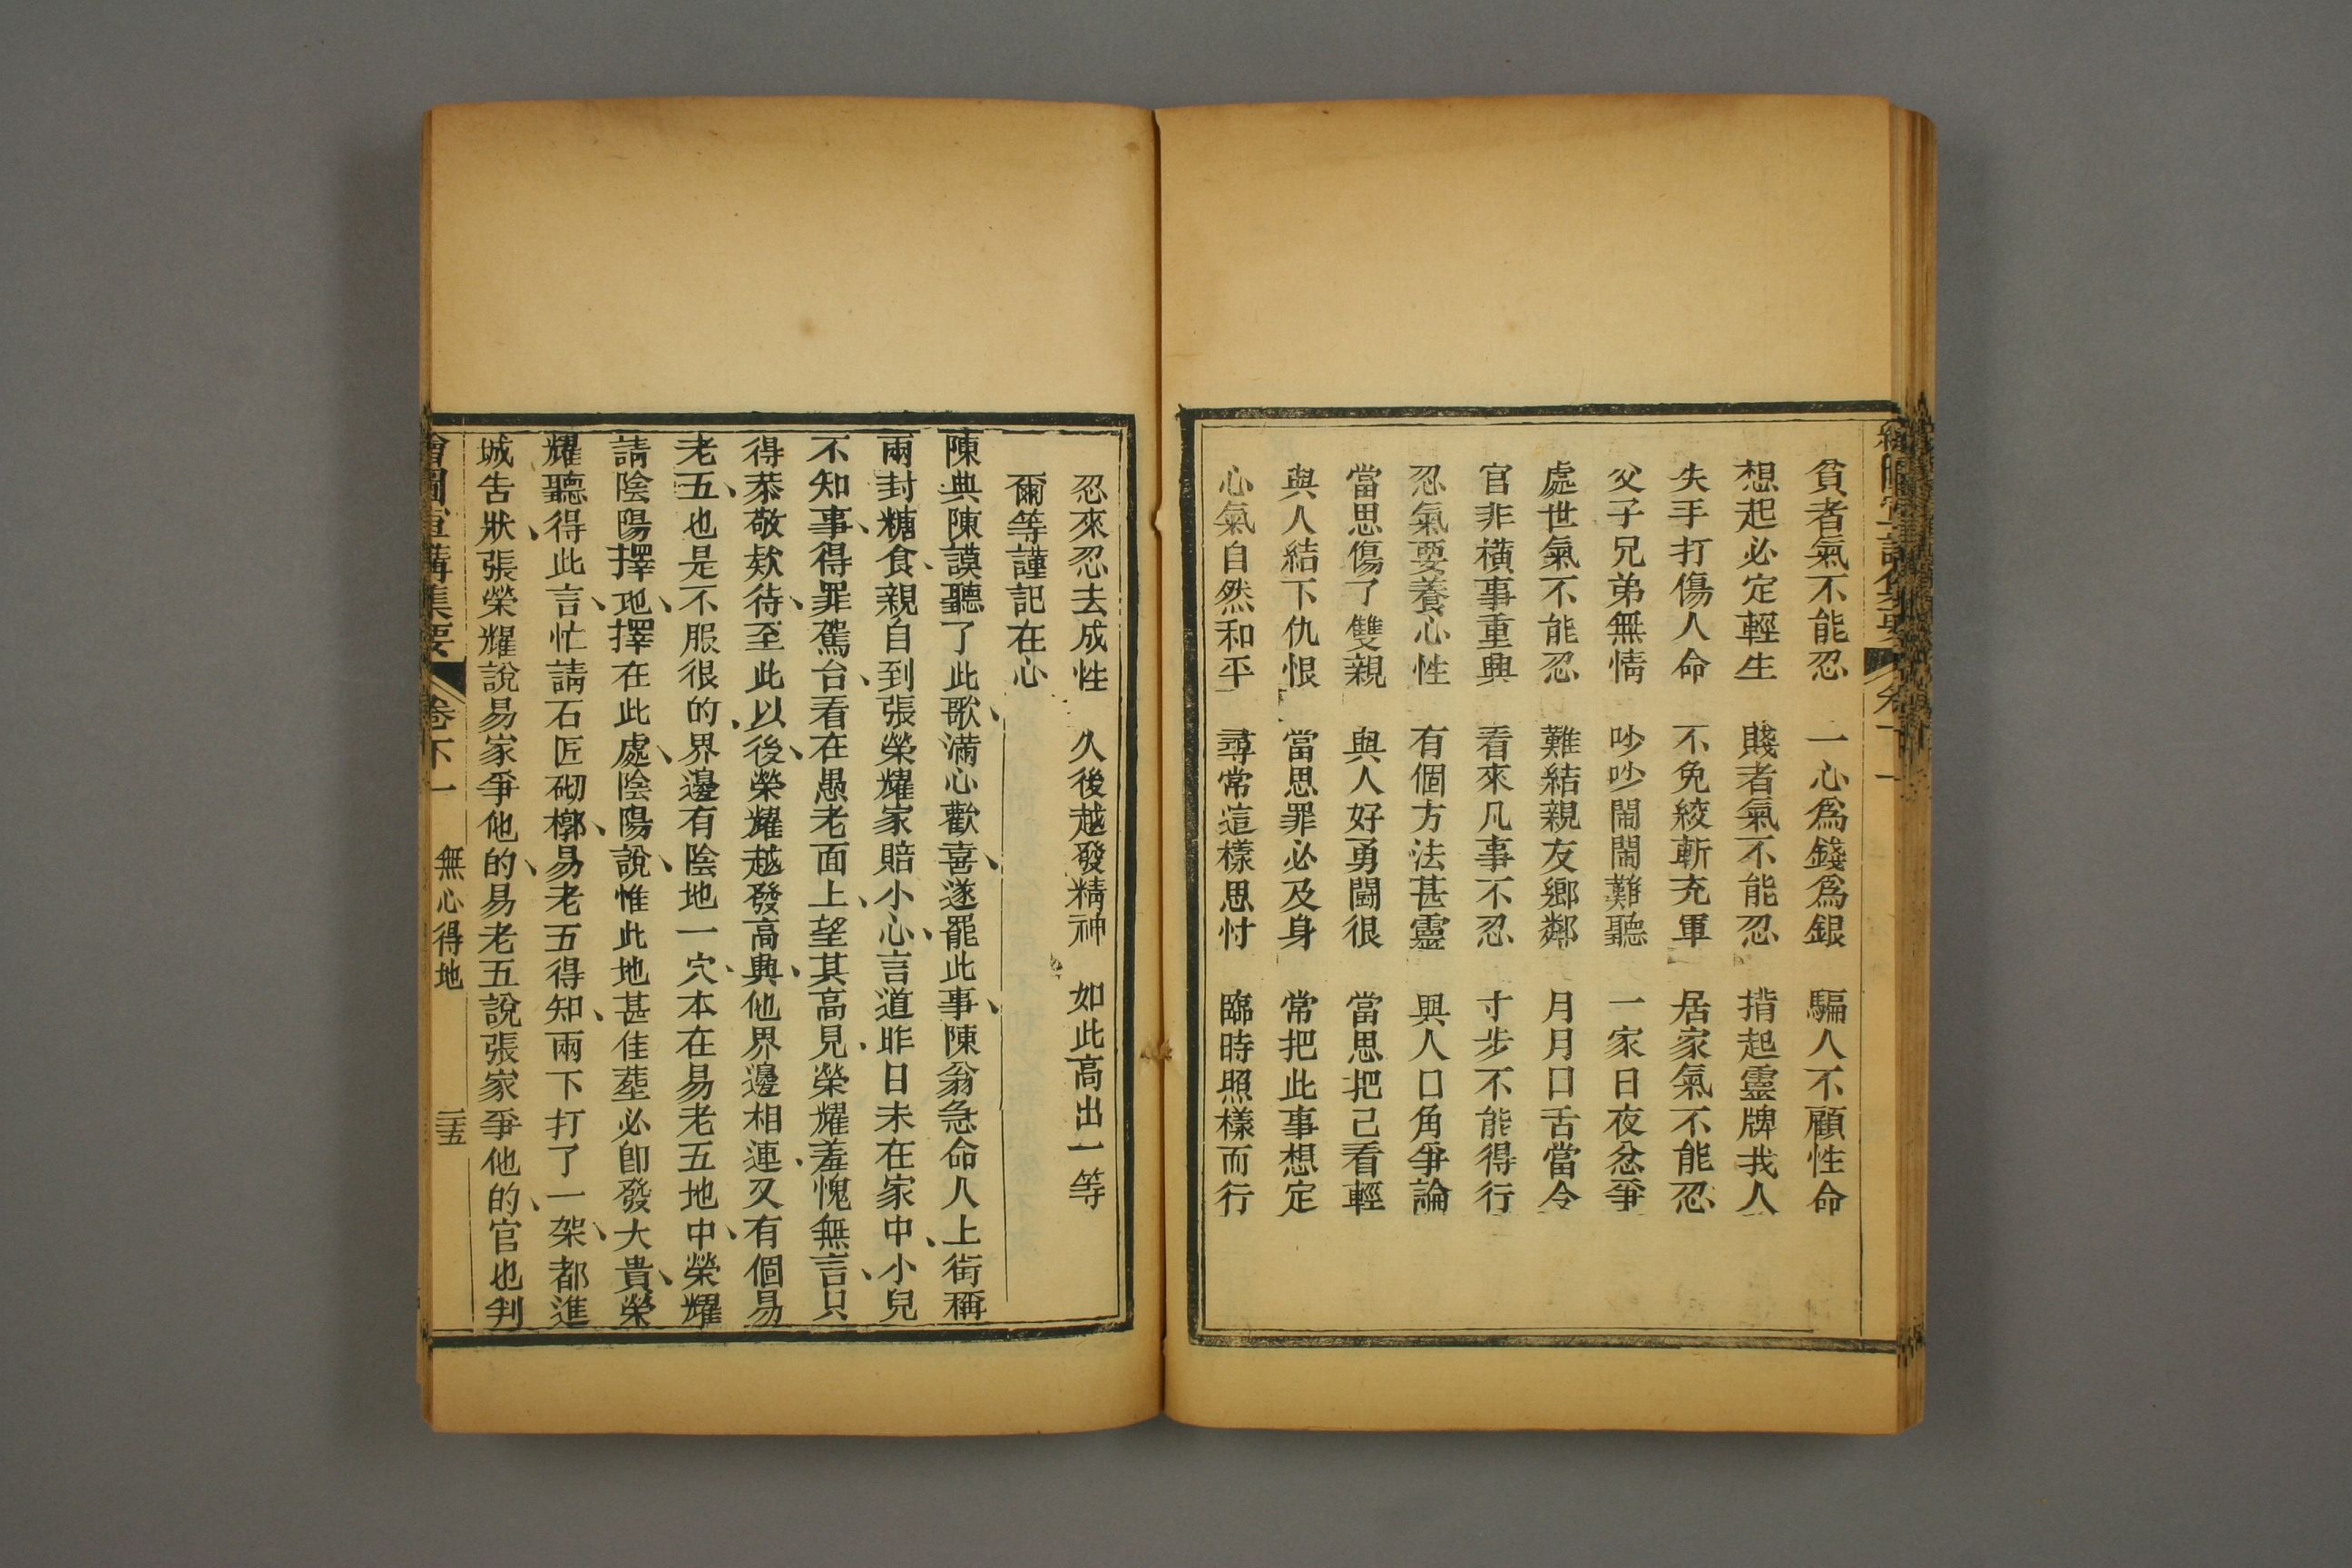 貧者氣不能忍　一心爲錢爲銀　騙人不顧性命
想起必定輕生　賤者氣不能忍　揹起靈牌我人
失手打傷人命　不免絞斬充軍　居家氣不能忍
父子兄弟無情　吵吵鬧鬧難聽　一家日夜忿爭
處世氣不能忍　難結親友鄉鄰　月月口舌當令
官非橫事重興　看來凡事不忍　寸步不能得行
忍氣要養心性　有個方法甚靈　與人口角爭論
當思傷了雙親　與人好勇鬪很　當思把己看輕
與人結下仇恨　當思罪必及身　常把此事想定
心氣自然和平　尋常這樣思忖　臨時照樣而行
忍來忍去成性　久後越發精神　如此高出一等
爾等謹記在心
陳典陳謨聽了此歌、滿心歡喜、遂罷此事、陳翁急命人上街稱
兩封糖食、親自到張榮耀家賠小心、言道昨日未在家中、小兒
不知事、得罪駕台、看在愚老面上、望其高見、榮耀羞愧無言、只
得恭敬欵待、至此以後、榮耀越發高興、他界邊相連、又有個易
老五、也是不服很的、界邊有陰地一穴、本在易老五地中、榮耀
請陰陽擇地、擇在此處、陰陽說、惟此地甚佳、塟必卽發大貴、榮
耀聽得此言、忙請石匠砌槨、易老五得知、兩下打了一架、都進
城告狀、張榮耀說易家爭他的、易老五說張家爭他的、官也判
繪圖宣講集要　卷下一　無心得地　三五